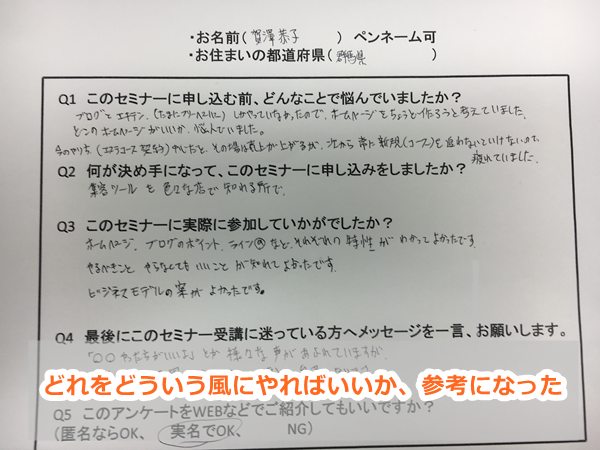 ・お名前( 賀澤恭子 ) ペンネーム可
・お住まいの都道府県( 群馬県 )
Q1 このセミナーに申し込む前、どんなことで悩んでいましたか？
ブログと エキテン、(たまにフリーペーパー) しかやっていなかったので、ホームページをちょうど作ろうと考えていました
どこのホームページがいいか、悩んでいました。
今のやり方、( 契約) だと、その場は売上が上がるが、次から 常に新規(コース)を追わないといけないので、
疲れていました。
Q2 何が決め手になって、このセミナーに申し込みをしましたか？
集客ツールを色々な店で知れる所で、
Q3 このセミナーに実際に参加していかがでしたか？
ホームページ、ブログのポイント、ライン@など、それぞれの特性がわかってよかったです。
やるべきこと やらなくてもいいことが知れてよかったです。
ビジネスモデルの案がよかったです。
Q4 最後にこのセミナー受講に迷っている方へメッセージを一言、お願いします。
「〇〇 がいいよ」とか 様々な声があふれていますが、
どれをどういう風にやればいいか、参考になった
Q5 このアンケートをWEBなどでご紹介してもいいですか？
(匿名ならOK、 実名でOK、 NG)